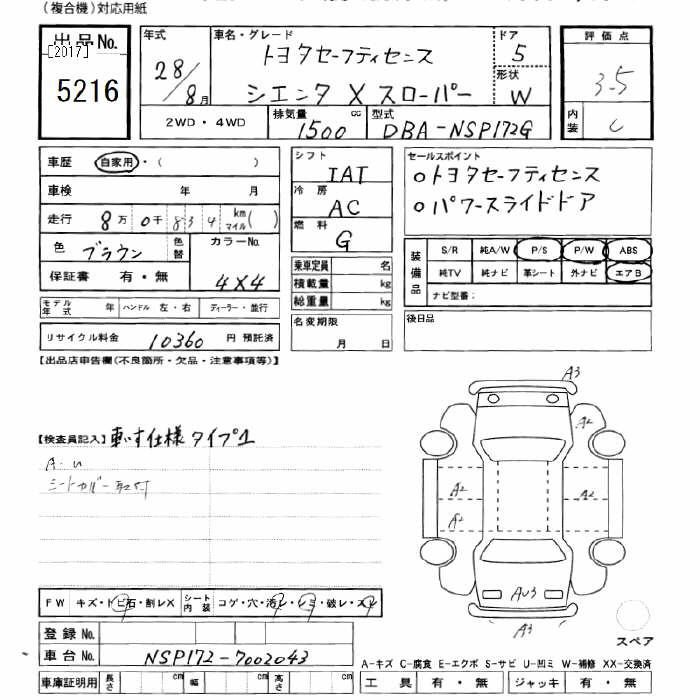 (複合機)対応用紙
出品No.
[2017]
5216
年式
28/8月
車名・グレード
トヨタセーフティセンス
シエンタ X スローパー
ドア
5
形状
W
評価点
3.5
内装
C
2WD・4WD
排気量
1500 cc
型式
DBA-NSP172G
車歴 自家用・( )
車検 年 月
走行 8万 0千 8 3 4 km マイル( )
色 ブラウン 色替
カラーNo.
4X4
保証書 有・無
モデル年式 年 ハンドル 左・右 ディーラー・並行
リサイクル料金 10360 円 預託済
シフト
IAT
冷房
AC
燃料
G
乗車定員 名
積載量 kg
総重量 kg
名変期限
月 日
セールスポイント
○トヨタセーフティセンス
○パワースライドドア
装備品
S/R 純A/W P/S P/W ABS
純TV 純ナビ 革シート 外ナビ エアB
ナビ型番:
後日品
【出品店申告欄(不良箇所・欠品・注意事項等)】
【検査員記入】 車いす仕様 タイプ1
A・U
シートカバー取付
A3
A2
A2
A2
AU3
A3
スペア
FW キズ・トビ石・割レX シート内装 コゲ・穴・汚レ・シミ・破レ・スレ
登録No.
車台No. NSP172-7002043
車庫証明用 長さ cm 幅 cm 高さ cm
A-キズ C-腐食 E-エクボ S-サビ U-凹ミ W-補修 XX-交換済
工具 有・無 ジャッキ 有・無